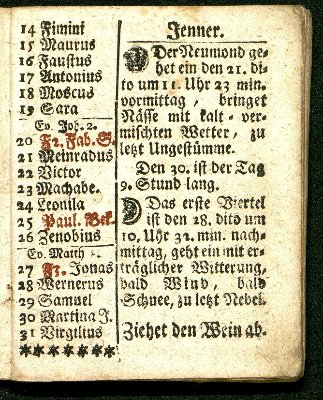 14 Fimini
15 Maurus
16 Faustus
17 Antonius
18 Moscus
19 Sara
Ev. Joh. 2.
20 Fr. Fab. S.
21 Meinradus
22 Victor
23 Machabe.
24 Leonila
25 Paul. Bek.
26 Zenobius
Ev. Matth
27 Fr. Jonas
28 Wernerus
29 Samuel
30 Martina J.
31 Virgilius
*******
Jenner.
Der Neumond ge-
het ein den 21. di-
to um 11. Uhr 23 min.
vormittag, bringet
Nässe mit kalt-ver-
mischten Wetter, zu
letzt Ungestümme.
Den 30. ist der Tag
9. Stund lang.
Das erste Viertel
ist den 28. dito um
10. Uhr 32. min. nach-
mittag, geht ein mit er-
träglicher Witterung,
bald Wind, bald
Schnee, zu letzt Nebel.
Ziehet den Wein ab.